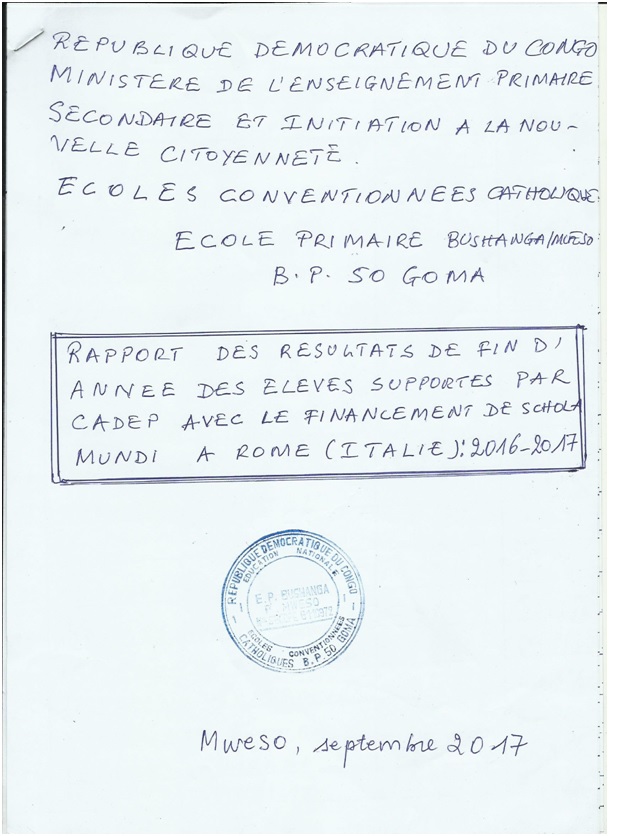 REPUBLIQUE DEMOCRATIQUE DU CONGO
MINISTERE DE L'ENSEIGNEMENT PRIMAIRE
SECONDAIRE ET INITIATION A LA NOU-
VELLE CITOYENNETE.
ECOLES CONVENTIONNEES CATHOLIQUE
ECOLE PRIMAIRE BUSHANGA/MWESO
B.P. 50 GOMA
RAPPORT DES RESULTATS DE FIN D'
ANNEE DES ELEVES SUPPORTES PAR
CADEP AVEC LE FINANCEMENT DE SCHOLA
MUNDI A ROME (ITALIE): 2016-2017
REPUBLIQUE DEMOCRATIQUE DU CONGO
EDUCATION NATIONALE
E.P. BUSHANGA
MWESO
ECOLES CONVENTIONNEES
CATHOLIQUES B.P. 50 GOMA
Mweso, septembre 2017